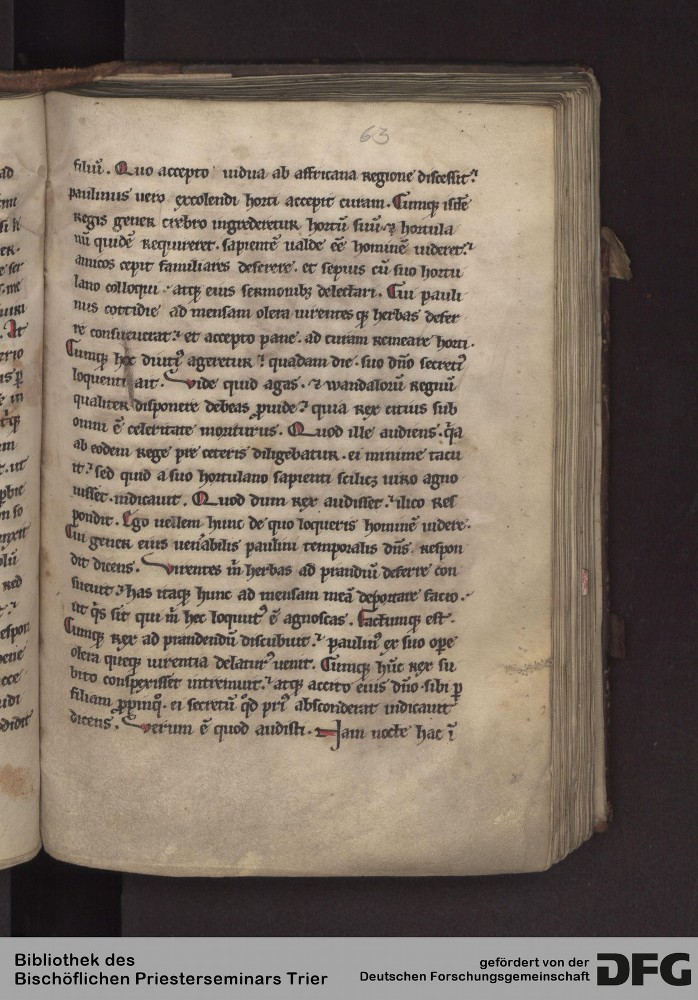 63
filiū. Quo accepto uidua ab affricana regione discessit.
paulinus uero excolendi horti accepit curam. Cumq; iste
regis gener crebro ingrederetur hortū suū. ⁊ hortula
nū quidē requireret. sapientē ualde eē hominē uideret.
amicos cepit familiares deserere. et sepius cū suo hortu
lano colloqui. atq; eius sermonib; delectari. Cui pauli
nus cottidie ad mensam olera uirentesq; herbas defer
re consueuerat. et accepto pane. ad curam remeare horti.
Cumq; hoc diuti⁹ ageretur. quadam die. suo dño secreti⁹
loquenti ait. Vide quid agas. ⁊ wandalorū regnū
qualiter disponere debeas puide. quia rex citius sub
omni ē celeritate moriturus. Quod ille audiens. qͣa
ab eodem rege pre ceteris diligebatur. ei minime tacu
it. sed quid a suo hortulano sapienti scilicʒ uiro agno
uisset. indicauit. Quod dum rex audisset. ilico res
pondit. Ego uellem hunc de quo loqueris hominē uidere.
Cui gener eius uen̄abilis paulini temporalis dñs. respon
dit dicens. Virentes m̄ herbas ad prandiū deferre con
sueuit. has itaq; hunc ad mensam meā deportare facio.
ut q̄s sit qui m̄ hec loquit᷑ ē agnoscas. Factumq; est.
Cumq; rex ad prandendū discubuit. paulin⁹ ex suo ope
olera queq; uirentia delatur⁹ uenit. Cumq; hūc rex su
bito conspexisset intremuit. atq; accito eius dño. sibi p
filiam ppinq̊. ei secretū qd̄ pri⁹ absconderat indicauit
dicens. Verum ē quod audisti. Nam nocte hac ī
Bibliothek des
Bischöflichen Priesterseminars Trier
gefördert von der
Deutschen Forschungsgemeinschaft
DFG